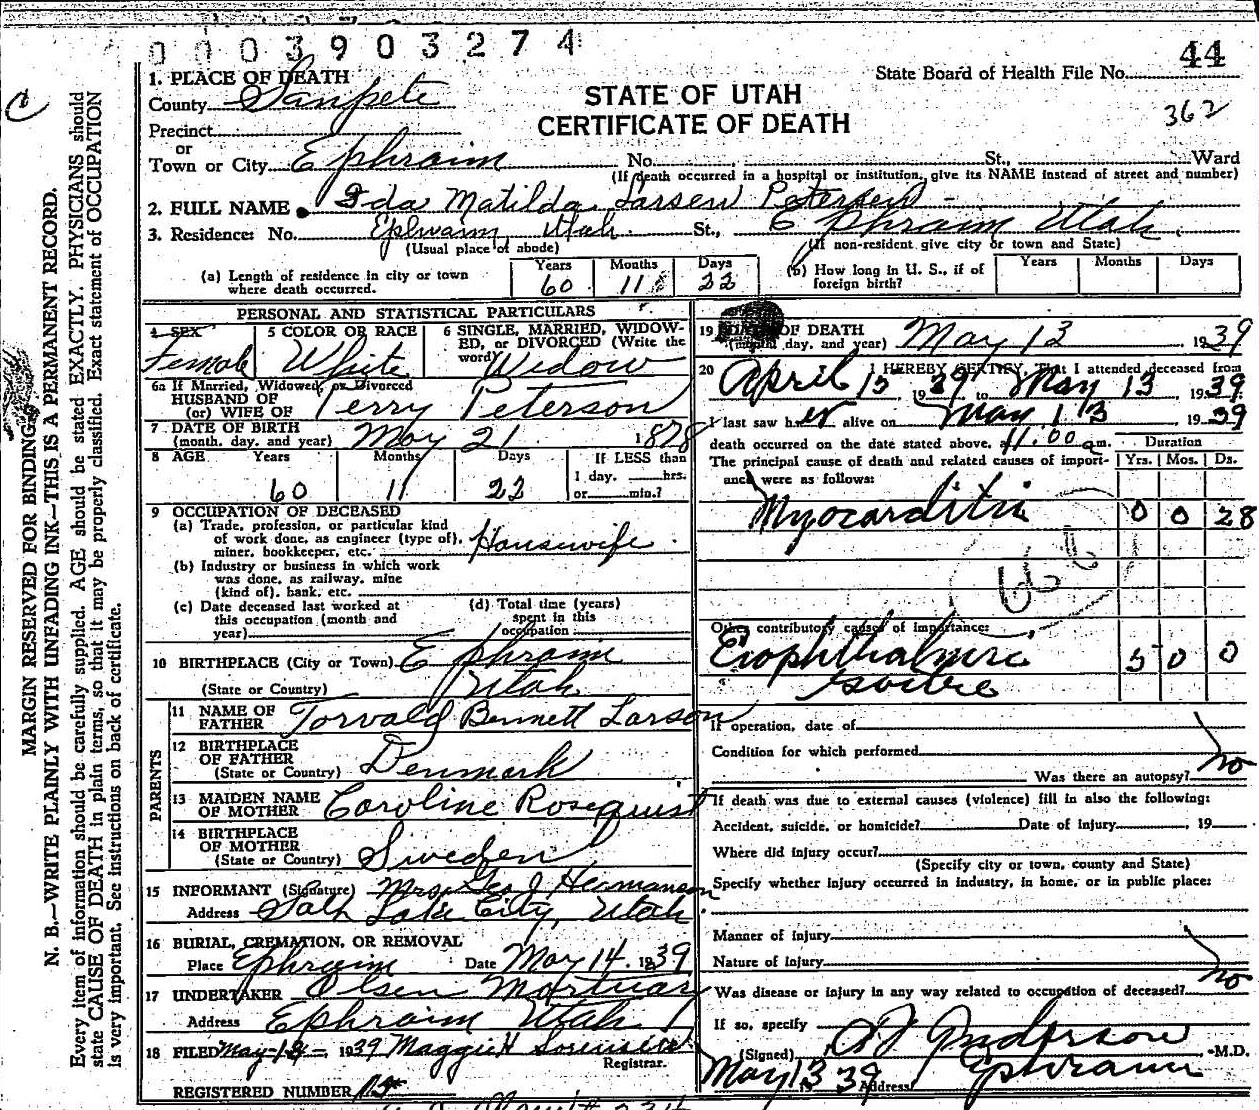 0003903274
44
1. PLACE OF DEATH
State Board of Health File No.
County Sanpete
STATE OF UTAH
362
Precinct
CERTIFICATE OF DEATH
or
Town or City Ephraim No. St., Ward
(If death occurred in a hospital or institution, give its NAME instead of street and number)
2. FULL NAME Ida Matilda Larsen Petersen
3. Residence: No. Ephraim Utah. St., Ephraim Utah.
(Usual place of abode) (If non-resident give city or town and State)
(a) Length of residence in city or town where death occurred. Years 60 Months 11 Days 22
(b) How long in U. S., if of foreign birth? Years Months Days
PERSONAL AND STATISTICAL PARTICULARS
4 SEX Female
5 COLOR OR RACE White
6 SINGLE, MARRIED, WIDOWED, or DIVORCED (Write the word) Widow
6a If Married, Widowed, or Divorced
HUSBAND OF
(or) WIFE OF Perry Peterson
7 DATE OF BIRTH
(month, day, and year) May 21 1878
8 AGE Years 60 Months 11 Days 22 If LESS than 1 day, hrs. or min.?
9 OCCUPATION OF DECEASED
(a) Trade, profession, or particular kind
of work done, as engineer (type of),
miner, bookkeeper, etc. Housewife
(b) Industry or business in which work
was done, as railway, mine
(kind of), bank, etc.
(c) Date deceased last worked at
this occupation (month and
year)
(d) Total time (years)
spent in this
occupation
10 BIRTHPLACE (City or Town) Ephraim
(State or Country) Utah
PARENTS
11 NAME OF FATHER Torvald Bennett Larson
12 BIRTHPLACE OF FATHER
(State or Country) Denmark
13 MAIDEN NAME OF MOTHER Caroline Rosequist
14 BIRTHPLACE OF MOTHER
(State or Country) Sweden
15 INFORMANT (Signature) Mrs. Geo J Hermanson
Address Salt Lake City, Utah.
16 BURIAL, CREMATION, OR REMOVAL
Place Ephraim Date May 14. 1939
17 UNDERTAKER Olsen Mortuary
Address Ephraim Utah
18 FILED May 1939 Maggie H Sorensen
Registrar.
REGISTERED NUMBER 15
19 DATE OF DEATH
(month, day, and year) May 13 1939
20 I HEREBY CERTIFY, That I attended deceased from
April 15 1939 to May 13, 1939
I last saw her alive on May 13 1939
death occurred on the date stated above, at 11.00 a.m. Duration
The principal cause of death and related causes of importance were as follows: Yrs. Mos. Ds.
Myocarditis 0 0 28
Other contributory causes of importance:
Exophthalmic 5 0 0
goitre
If operation, date of
Condition for which performed
Was there an autopsy? No
If death was due to external causes (violence) fill in also the following:
Accident, suicide, or homicide? Date of injury , 19
Where did injury occur?
(Specify city or town, county and State)
Specify whether injury occurred in industry, in home, or in public place:
Manner of injury
Nature of injury
Was disease or injury in any way related to occupation of deceased? No
If so, specify
(Signed) Anderson M.D.
May 13 39 Address Ephraim
MARGIN RESERVED FOR BINDING
N. B.—WRITE PLAINLY WITH UNFADING INK—THIS IS A PERMANENT RECORD.
Every item of information should be carefully supplied. AGE should be stated EXACTLY. PHYSICIANS should
state CAUSE OF DEATH in plain terms, so that it may be properly classified. Exact statement of OCCUPATION
is very important. See instructions on back of certificate.